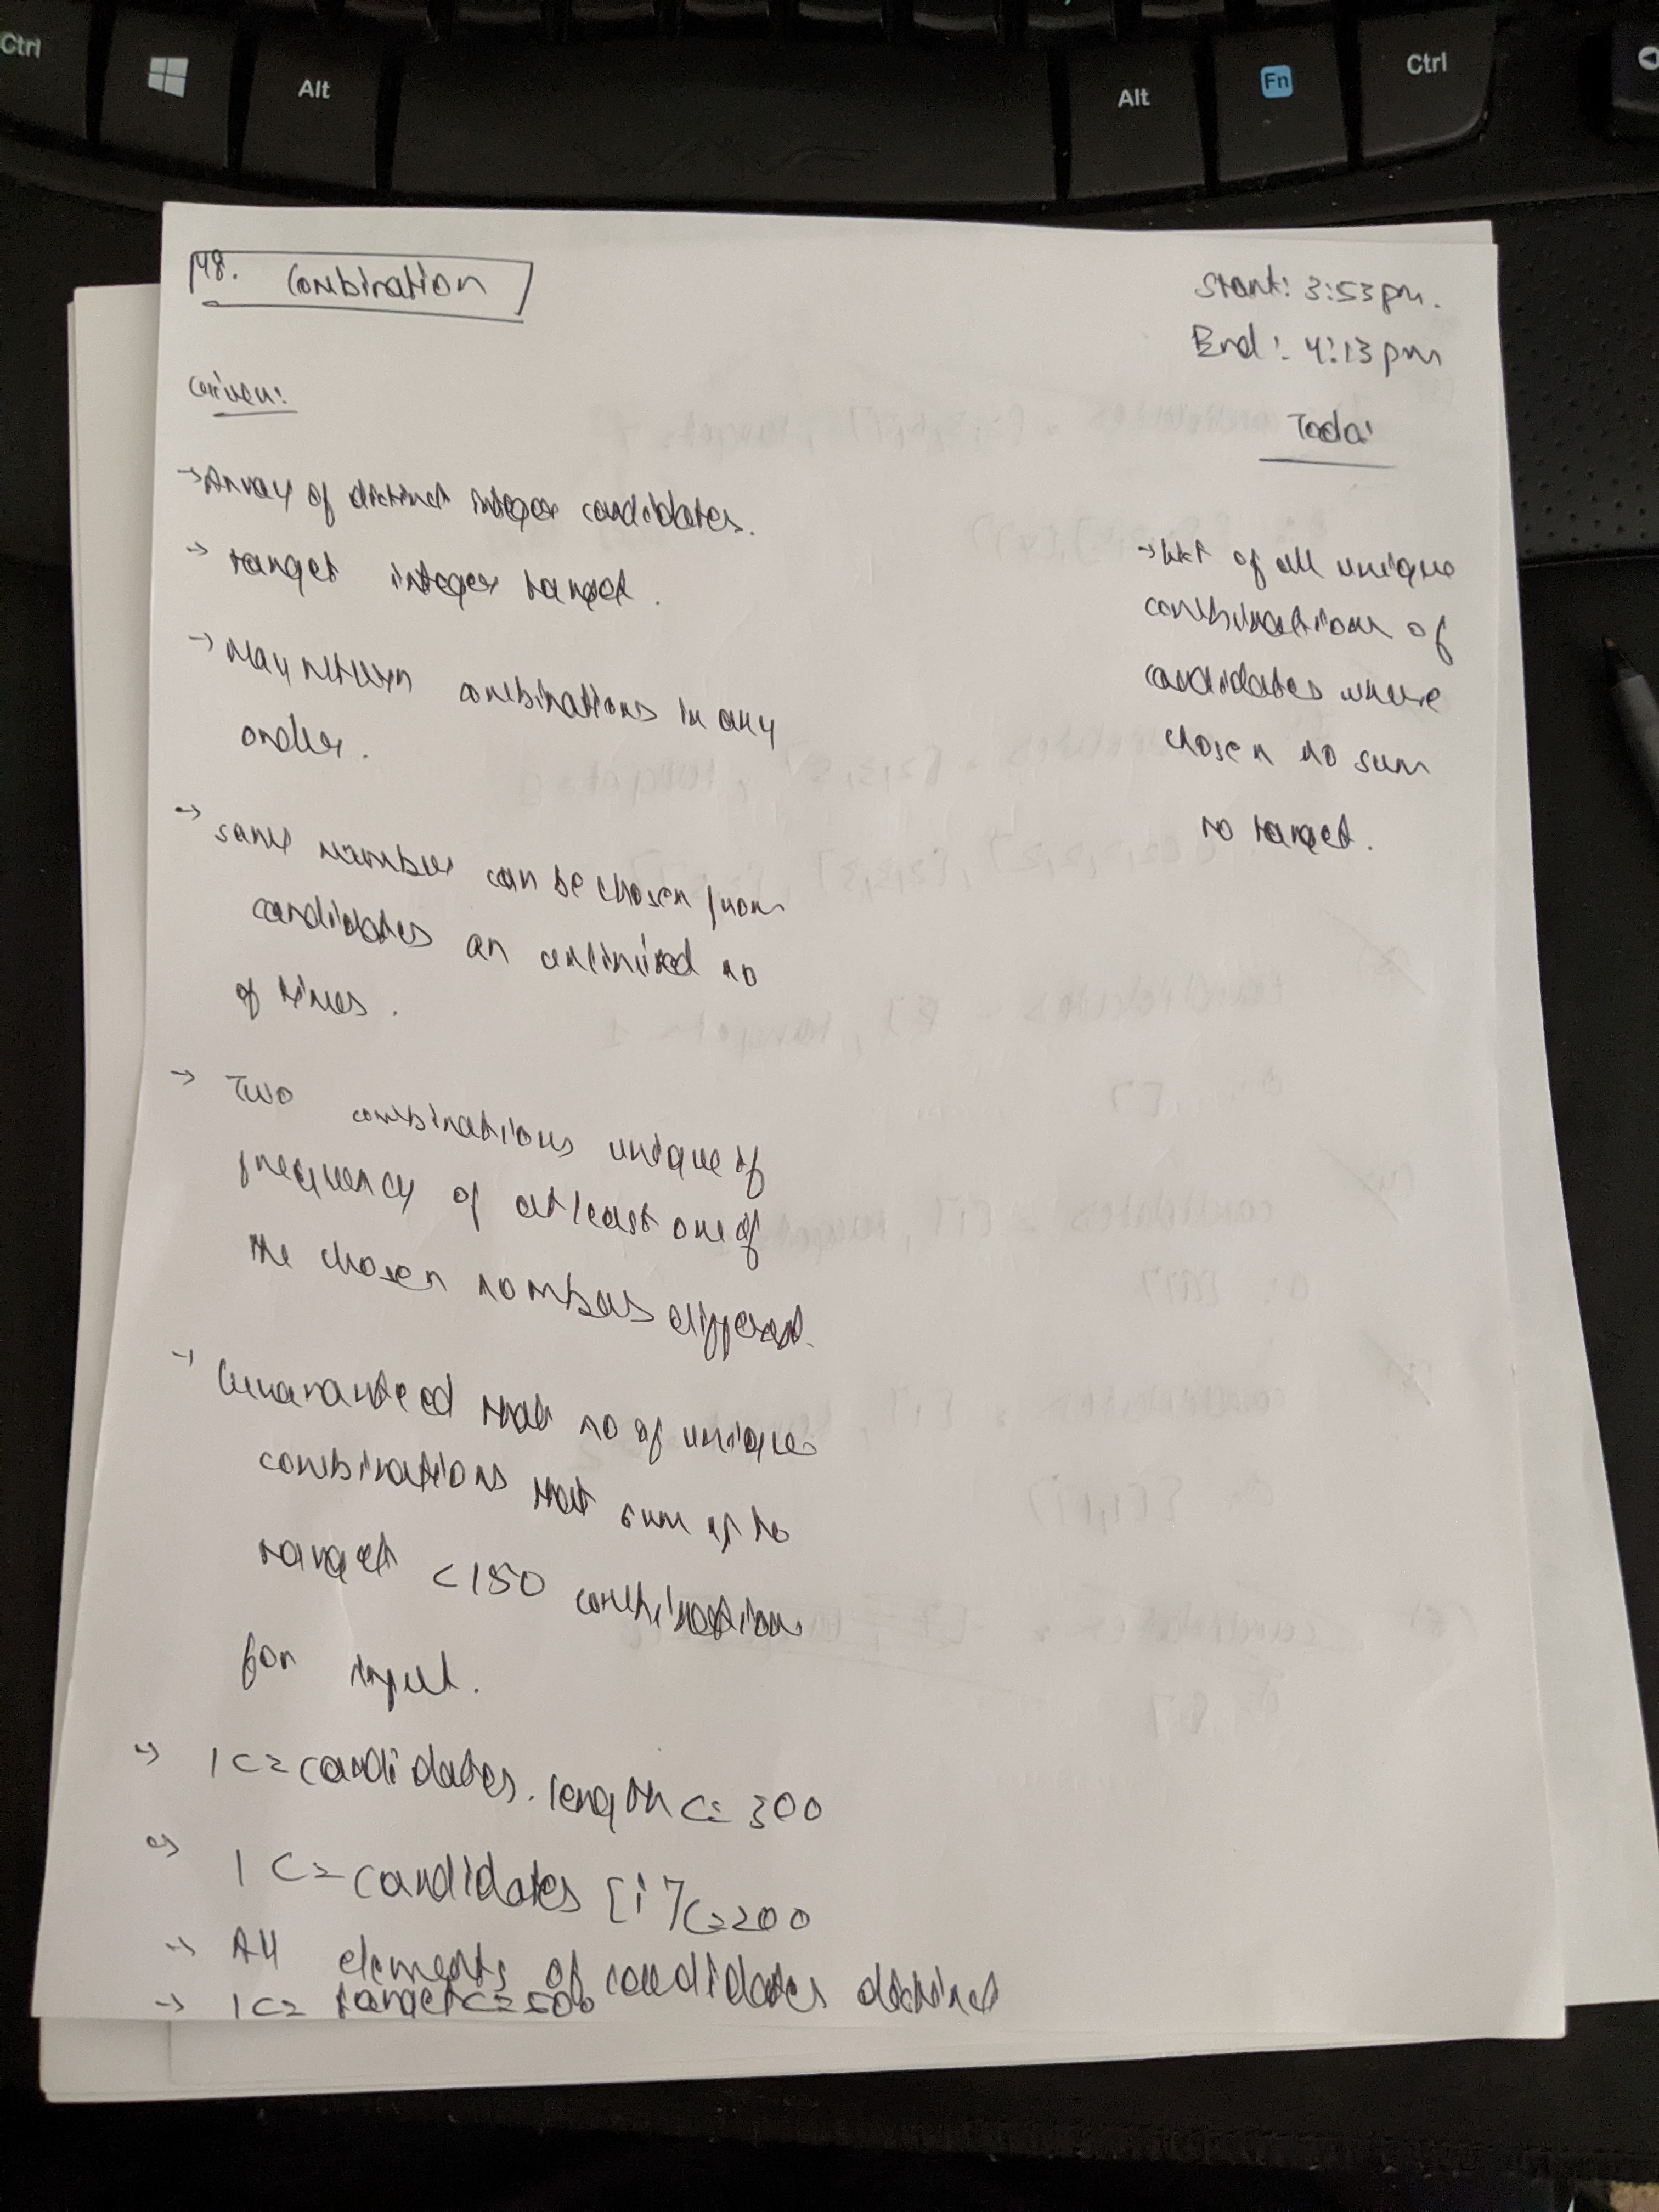 Ctrl
Alt
Alt
Fn
Ctrl
148. Combination
Start: 3:53pm.
End: 4:13pm
Given:
Todo:
→Array of distinct integer candidates.
→ target integer target.
→ May return combinations in any
order.
→ same number can be chosen from
candidates an unlimited no
of times.
→ Two combinations unique if
frequency of at least one of
the chosen numbers different.
→ Guaranteed that no of unique
combinations that sum up to
target <150 combination
for input.
→ 1<=candidates.length<=300
→ 1<=candidates[i]<=200
→ All elements of candidates distinct
→ 1<= target<=500
→List of all unique
combinations of
candidates where
chosen no sum
to target.